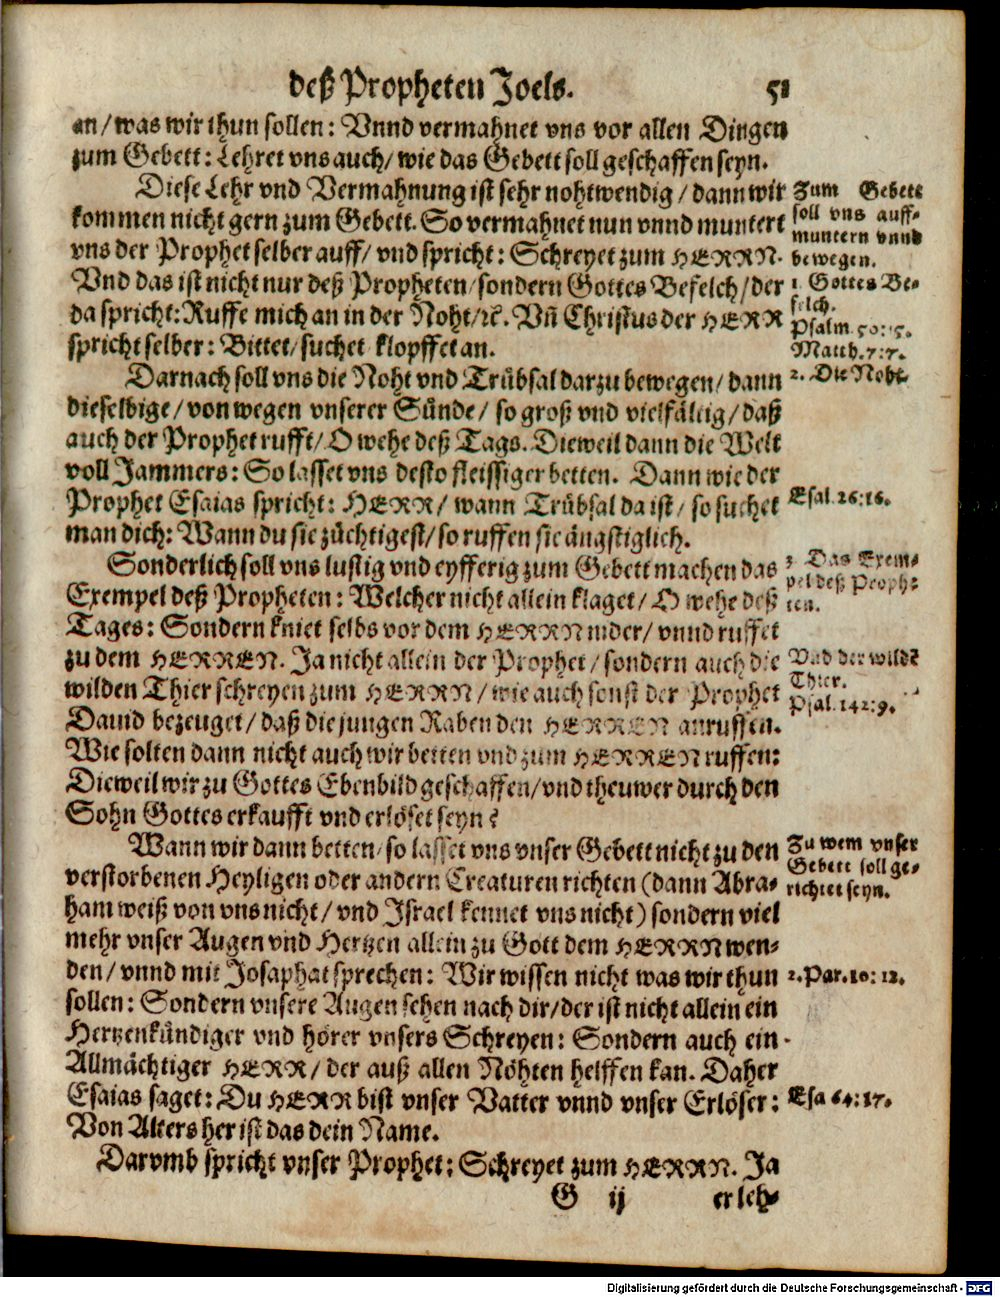 deß Propheten Joels. 51
an/ was wir thun sollen: Vnnd vermahnet vns vor allen Dingen
zum Gebett: Lehret vns auch/ wie das Gebett soll geschaffen seyn.
Diese Lehr vnd Vermahnung ist sehr nohtwendig/ dann wir
kommen nicht gern zum Gebett. So vermahnet nun vnnd muntert
vns der Prophet selber auff/ vnd spricht: Schreyet zum HERRN.
Vnd das ist nicht nur deß Propheten/ sondern Gottes Befelch/ der
da spricht: Ruffe mich an in der Noht/ ꝛc. Vñ Christus der HERR
spricht selber: Bittet/ suchet klopffet an.
Zum Gebett
soll vns auff-
muntern vnnd
bewegen.
1. Gottes Be-
felch.
Psalm. 50:15.
Matth. 7:7.
Darnach soll vns die Noht vnd Trübsal darzu bewegen/ dann
dieselbige/ von wegen vnserer Sünde/ so groß vnd vielfältig/ daß
auch der Prophet rufft/ O wehe deß Tags. Dieweil dann die Welt
voll Jammers: So lasset vns desto fleissiger betten. Dann wie der
Prophet Esaias spricht: HERR/ wann Trübsal da ist/ so suchet
man dich: Wann du sie züchtigest/ so ruffen sie ängstiglich.
2. Die Noht.
Esai. 26:16.
Sonderlich soll vns lustig vnd eyfferig zum Gebett machen das
Exempel deß Propheten: Welcher nicht allein klaget/ O wehe deß
Tages: Sondern kniet selbs vor dem HERRN nider/ vnnd ruffet
zu dem HERREN. Ja nicht allein der Prophet/ sondern auch die
wilden Thier schreyen zum HERRN/ wie auch sonst der Prophet
Dauid bezeuget/ daß die jungen Raben den HERREN anruffen.
Wie solten dann nicht auch wir betten vnd zum HERREN ruffen:
Dieweil wir zu Gottes Ebenbild geschaffen/ vnd theuwer durch den
Sohn Gottes erkaufft vnd erlöset seyn?
3. Das Exem-
pel deß Proph:
ten.
Vnd der wildē
Thier.
Psal. 142:9.
Wann wir dann betten/ so lasset vns vnser Gebett nicht zu den
verstorbenen Heyligen oder andern Creaturen richten (dann Abra-
ham weiß von vns nicht/ vnd Israel kennet vns nicht) sondern viel
mehr vnser Augen vnd Hertzen allein zu Gott dem HERRN wen-
den/ vnnd mit Josaphat sprechen: Wir wissen nicht was wir thun
sollen: Sondern vnsere Augen sehen nach dir/ der ist nicht allein ein
Hertzenkündiger vnd hörer vnsers Schreyen: Sondern auch ein
Allmächtiger HERR/ der auß allen Nöhten helffen kan. Daher
Esaias saget: Du HERR bist vnser Vatter vnnd vnser Erlöser:
Von Alters her ist das dein Name.
Zu wem vnser
Gebett soll ge-
richtet seyn.
2. Par. 20: 12.
Esa 64:17.
Darvmb spricht vnser Prophet: Schreyet zum HERRN. Ja
G ij er leh-
Digitalisierung gefördert durch die Deutsche Forschungsgemeinschaft - DFG